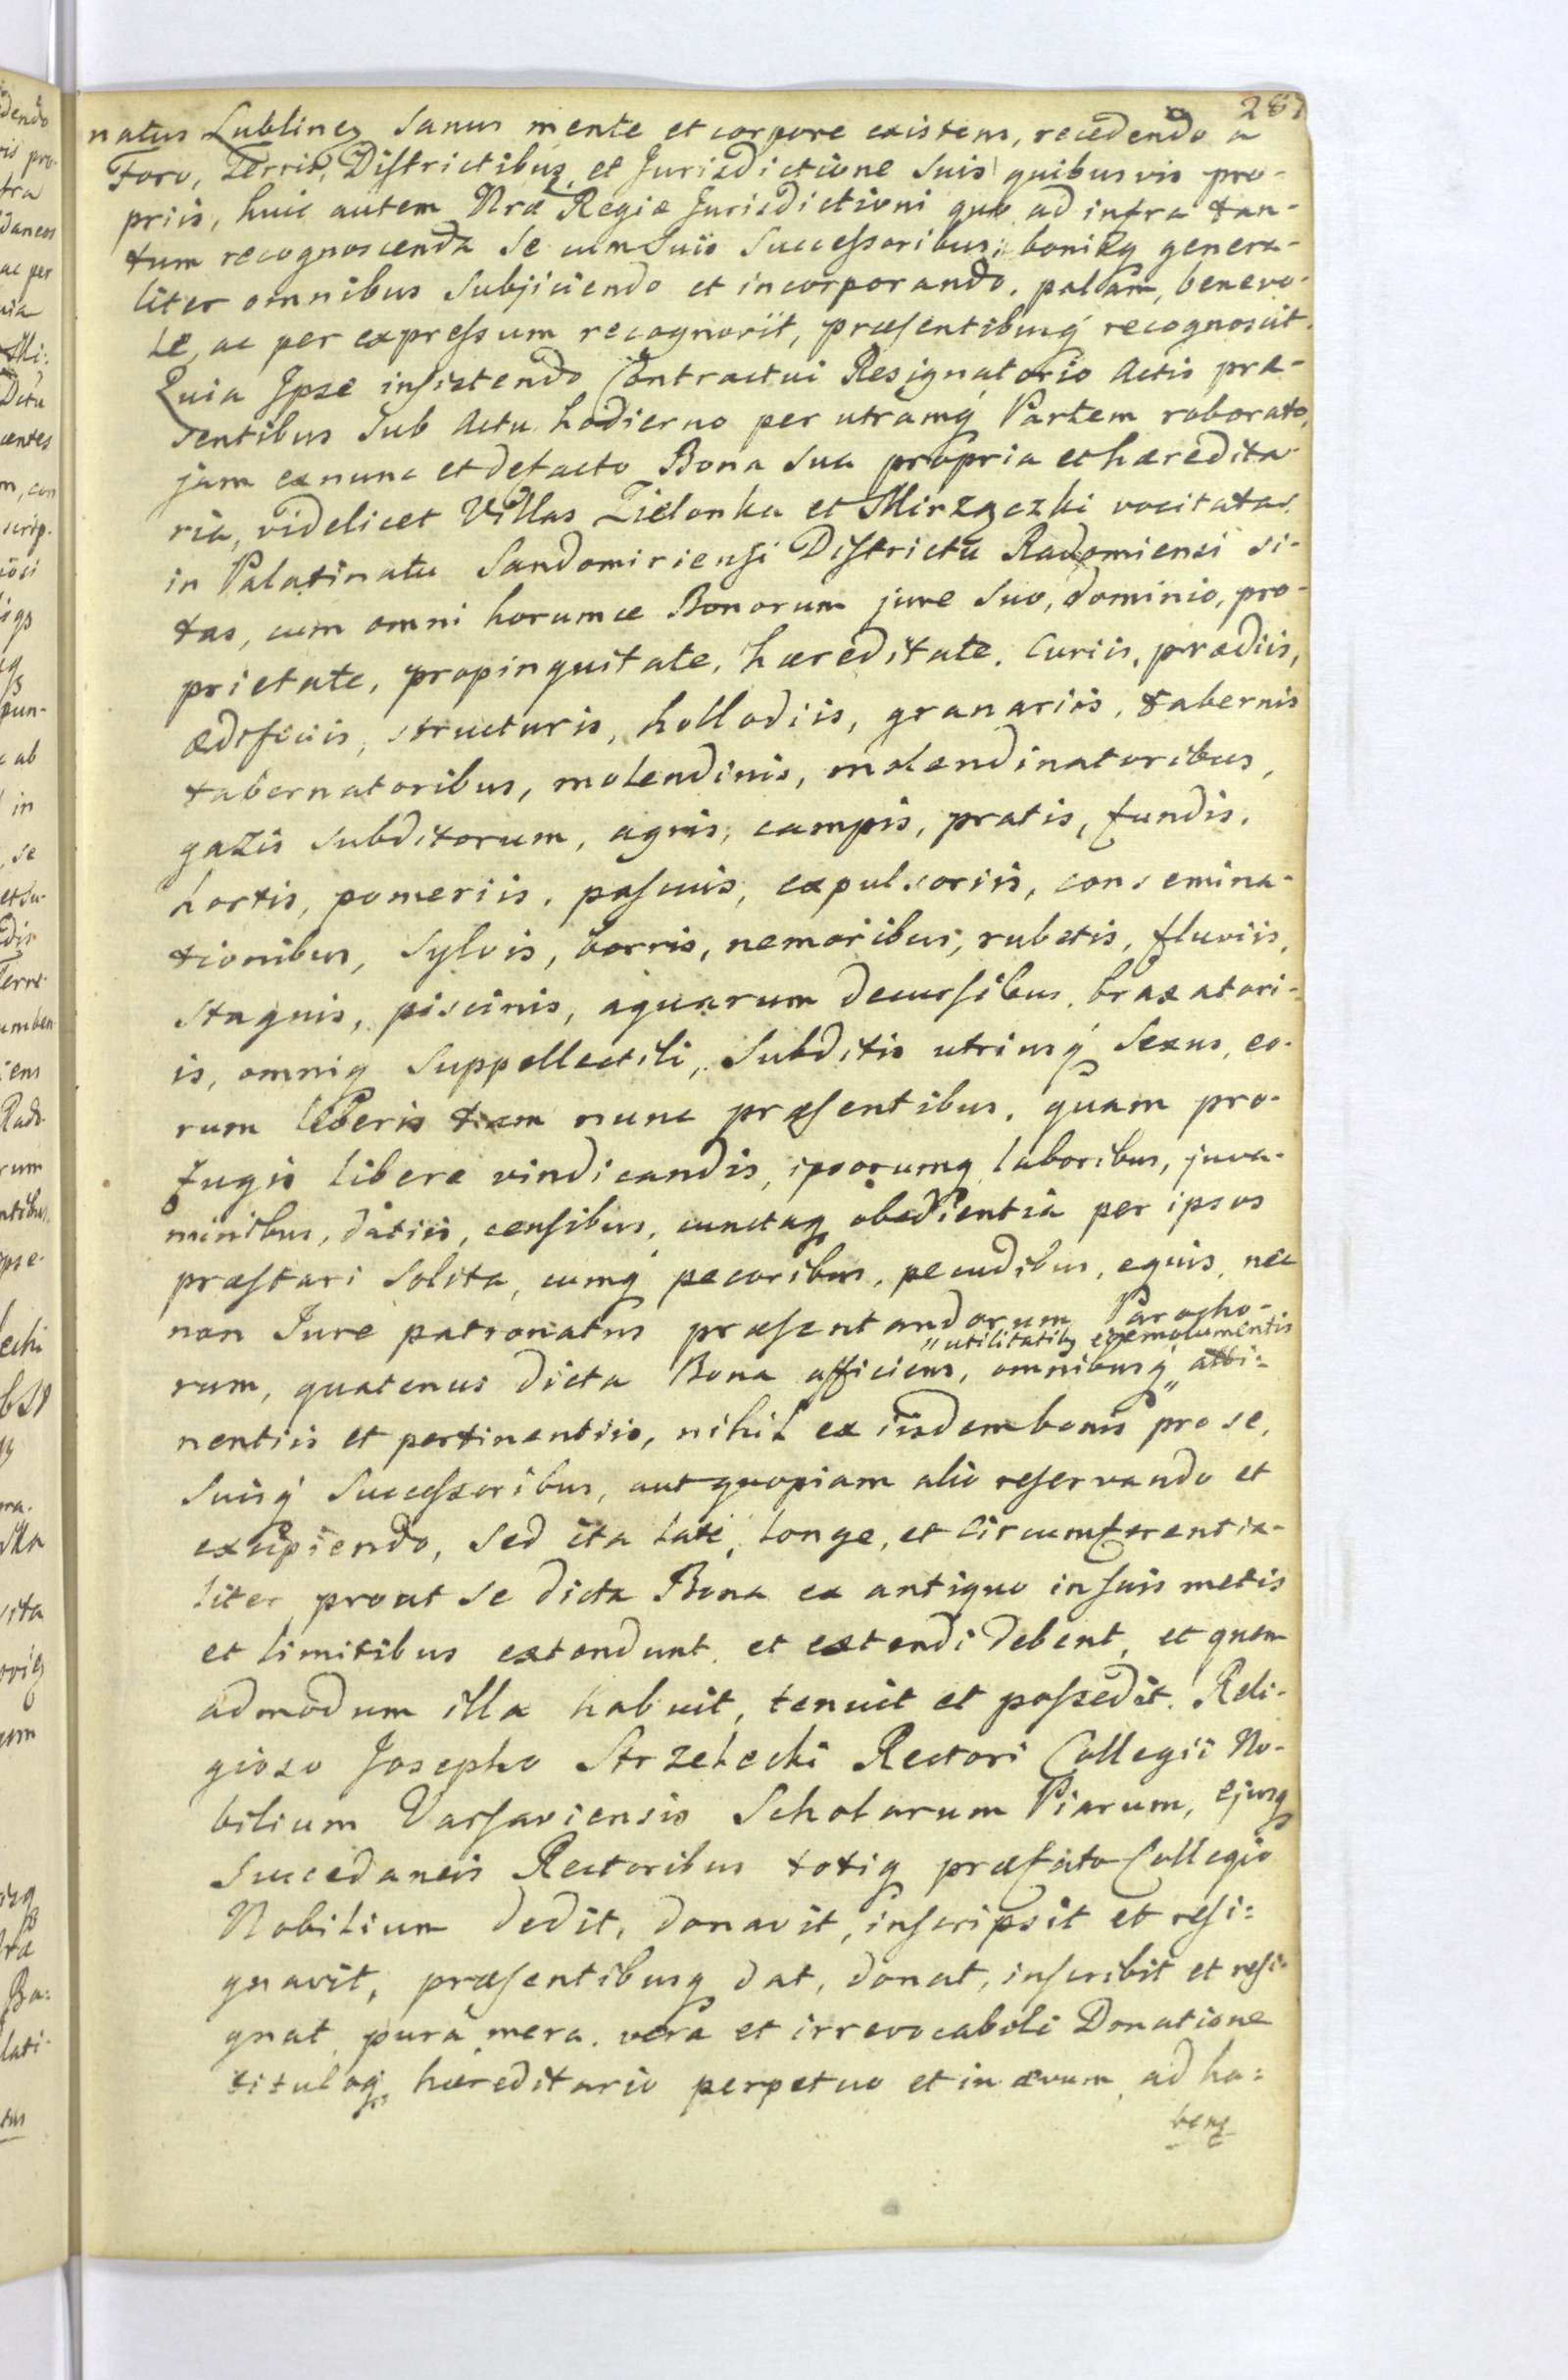 287
natus Lublinens. Sanus mente et corpore existens, recedendo a
Foro, Terris, Districtibus, et Jurisdictione suis quibusvis pro-
priis, huic autem Nræ Regiæ Jurisdictioni quo ad infra tan-
tum recognoscenda se cum suis Successoribus, bonisq generа-
liter omnibus Subjiciendo et incorporando, palam, benevo-
le, ac per expressum recognovit, præsentibusq recognoscit.
Quia Ipse insistendo Contractui Resignatorio Actis præ-
sentibus sub Actu hodierno per utramq Partem roborato,
jam ex nunc et de facto Bona sua propria et hæredita-
ria, videlicet Villas Zielonka et Mirzączki vocitatas
in Palatinatu Sandomiriensi Districtu Radomiensi si-
tas, cum omni horumce Bonorum jure suo, dominio, pro-
prietate, propinquitate, hæreditate, Curiis, prædiis,
ædificiis, structuris, hollodiis, granariis, tabernis
tabernatoribus, molendinis, molendinatoribus,
gazis subditorum, agris, campis, pratis, fundis,
hortis, pomeriis, pascuis, expulsoriis, consemina-
tionibus, Sylvis, borris, nemoribus, rubetis, fluviis,
stagnis, piscinis, aquarum decursibus, braxatori-
is, omniq Suppellectili, Subditis utriusq Sexus, eo-
rum liberis tam nunc præsentibus, quam pro-
fugis libere vindicandis, ipsorumq laboribus, juva-
minibus, datiis, censibus, cunctaq obedientia per ipsos
præstari solita, cumq pecoribus, pecudibus, equis, nec
non Jure patronatus præsentandorum Parocho-
"utilitatibq emolumentis
rum, quatenus dicta Bona afficiens, omnibusq " atti-
nentiis et pertinentiis, nihil ex iisdem bonis pro se,
Suisq Successoribus, aut quopiam alio reservando et
excipiendo, sed ita late, longe, et circumferentia-
liter, prout se dicta Bona ex antiquo in suis metis
et limitibus extendunt, et extendi debent, et quem-
admodum illa habuit, tenuit et possedit. Reli-
gioso Josepho Strzelecki Rectori Collegii No-
bilium Varsaviensis Scholarum Piarum, ejusq
Succedaneis Rectoribus totiq præfato Collegio
Nobilium dedit, donavit, inscripsit et resi-
gnavit, præsentibusq dat, donat, inscribit et resi-
gnat, pura mera, vera et irrevocabili Donatione
tituloq hæreditario perpetuo et in ævum, ad ha-